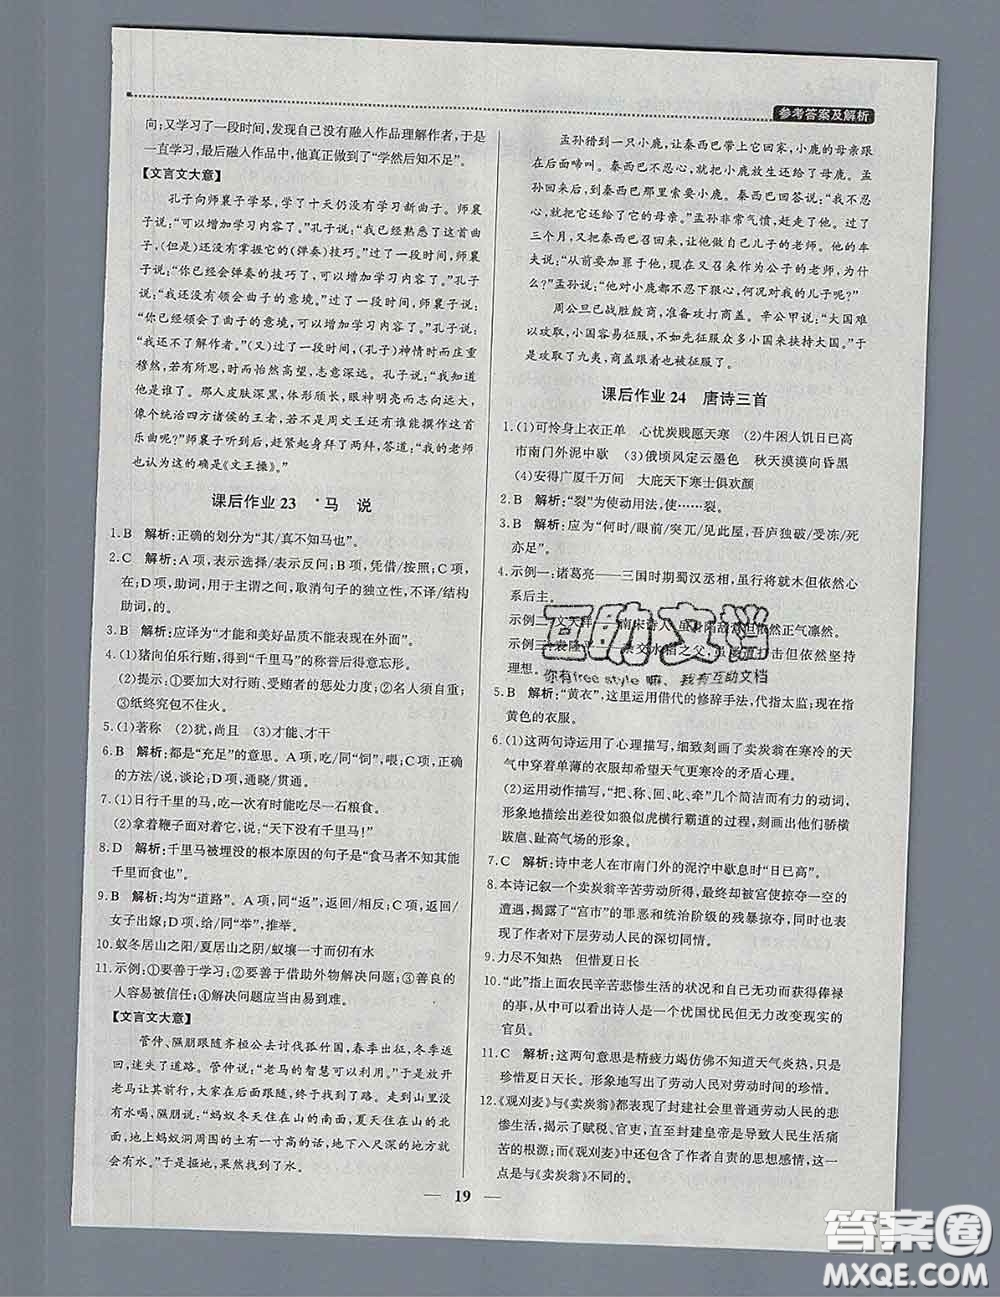 参考答案及解析
向;又学习了一段时间,发现自己没有融人作品理解作者,于是
一直学习,最后融人作品中,他真正做到了“学然后知不足”。
【文言文大意】
孔子向师襄子学琴,学了十天仍没有学习新曲子。师襄
子说:“可以增加学习内容了。”孔子说:“我已经熟悉了这首曲
子,(但是)还没有掌握它的(弹奏)技巧。”过了一段时间,师襄子
说:“你已经会弹奏的技巧了,可以增加学习内容了。”孔子
说:“我还没有领会曲子的意境。”过了一段时间,师襄子说:
“你已经领会了曲子的意境,可以增加学习内容了。”孔子说:
“我还不了解作者。”(又)过了一段时间,(孔子)神情时而庄重
穆然,若有所思,时而怡然高望,志意深远。孔子说:“我知道
他是谁了。那人皮肤深黑,体形颀长,眼神明亮而志向远大,
像个统治四方诸侯的王者,若不是周文王还有谁能撰作这首
乐曲呢?”师襄子听到后,赶紧起身拜了两拜,答道:“我的老师
也认为这的确是《文王操》。”
课后作业 23 *马 说
1. B 解析:正确的划分为“其/真不知马也”。
2. C 解析:A 项,表示选择/表示反问;B 项,凭借/按照;C 项,
在;D 项,助词,用于主谓之间、取消句子的独立性,不译/结构
助词,的。
3. B 解析:应译为“才能和美好品质不能表现在外面”。
4. (1)猪向伯乐行贿,得到“千里马”的称誉后得意忘形。
(2)提示:①要加大对行贿、受贿者的惩处力度;②名人须自重;
③纸终究包不住火。
5. (1)著称 (2)犹,尚且 (3)才能、才干
6. B 解析:都是“充足”的意思。A 项,吃/同“饲”,喂;C 项,正
确的方法/说,谈论;D 项,通晓/贯通。
7. (1)日行千里的马,一次有时能吃尽一石粮食。
(2)拿着鞭子面对着它,说:“天下没有千里马!”
8. D 解析:千里马被埋没的根本原因的句子是“食马者不知其能
千里而食也”。
9. B 解析:均为“道路”。A 项,同“返”,返回/相反;C 项,返回/
女子出嫁;D 项,给/同“举”,推举。
10. 蚁冬居山之阳/夏居山之阴/蚁壤一寸而仞有水
11. 示例:①要善于学习;②要善于借助外物解决问题;③善良的
人容易被信任;④解决问题应当由易到难。
【文言文大意】
管仲、隰朋跟随齐桓公去讨伐孤竹国,春季出征,冬季返
回,迷失了道路。管仲说:“老马的智慧可以利用。”于是放开
老马让其前行,大家在后面跟随,终于找到了路。走到山里没
有水喝,隰朋说:“蚂蚁冬天住在山的南面,夏天住在山的北
面,地上蚂蚁洞周围的土有一寸高的话,地下八尺深的地方就
会有水。”于是掘地,果然找到了水。
孟孙猎到一只小鹿,让秦西巴带上它回家,小鹿的母亲跟
在后面啼叫。秦西巴不忍心,就把小鹿放生还给了母鹿。孟
孙回来后,到秦西巴那里索要小鹿。秦西巴回答说:“我不忍
心,就把它还给了它的母亲。”孟孙非常气愤,赶走了他。过了
三个月,又把秦西巴召回来,让他做自己儿子的老师。他的车
夫说:“先前要加罪于他,现在又召来作为公子的老师,为什
么?”孟孙说:“他对小鹿都不下狠心,何况对我的儿子呢?”
周公旦已战胜殷商,准备攻打商盖。辛公甲说:“大国难
以攻取,小国容易征服,不如先征服众多小国来扶持大国。”于
是攻取了九夷,商盖跟着也被征服了。
课后作业 24 唐诗三首
1. (1)可怜身上衣正单 心忧炭贱愿天寒 (2)牛困人饥日已高
市南门外泥中歇 (3)俄顷风定云墨色 秋天漠漠向昏黑
(4)安得广厦千万间 大庇天下寒士俱欢颜
2. B 解析:“裂”为使动用法,使……裂。
3. B 解析:应为“何时/眼前/突兀/见此屋,吾庐独破/受冻/死
亦足”。
4. 示例一:诸葛亮——三国时期蜀汉丞相,虽行将就木但依然心
系后主。
示例二:文天祥——南宋诗人,虽身陷敌意但依然正气凛然。
示例三:袁隆平——杂交水稻之父,虽屡屡但依然坚持
理想。
5. B 解析:“黄衣”,这里运用借代的修辞手法,代指太监;现在指
黄色的衣服。
6. (1)这两句诗运用了心理描写,细致刻画了卖炭翁在寒冷的天
气中穿着单薄的衣服却希望天气更寒冷的矛盾心理。
(2)运用动作描写,“把、称、回、叱、牵”几个简洁而有力的动词,
形象地描绘出差役如狼似虎横行霸道的过程,刻画了他们骄横
跋扈、趾高气扬的形象。
7. C 解析:诗中老人在市南门外的泥泞中歇息时“日已高”。
8. 本诗记叙一个卖炭翁辛苦劳动所得,最终却被宫使掠夺一空的
遭遇,揭露了“宫市”的罪恶和统治阶级的残暴掠夺,同时也表
达了作者对下层劳动人民的深切同情。
9. 力尽不知热 但惜夏日长
10. “此”指上面农民辛苦悲惨生活的状况和自己无功而获得俸禄
的事,从中可以看出诗人是一个忧国忧民但无力改变现实的
官员。
11. C 解析:这两句意思是精疲力竭仿佛不知道天气炎热,只是
珍惜夏日天长。形象地写出了劳动人民对劳动时间的珍惜。
12. 《观刈麦》与《卖炭翁》都表现了封建社会里普通劳动人民的悲
惨生活,揭示了赋税、官吏,直至封建皇帝是导致人民生活痛
苦的根源;而《观刈麦》中还包含了作者自责的思想感情,这一
点是与《卖炭翁》不同的。
互助文档
你有free style嘛,我有互助文档
19
答案圈
MXQE.COM